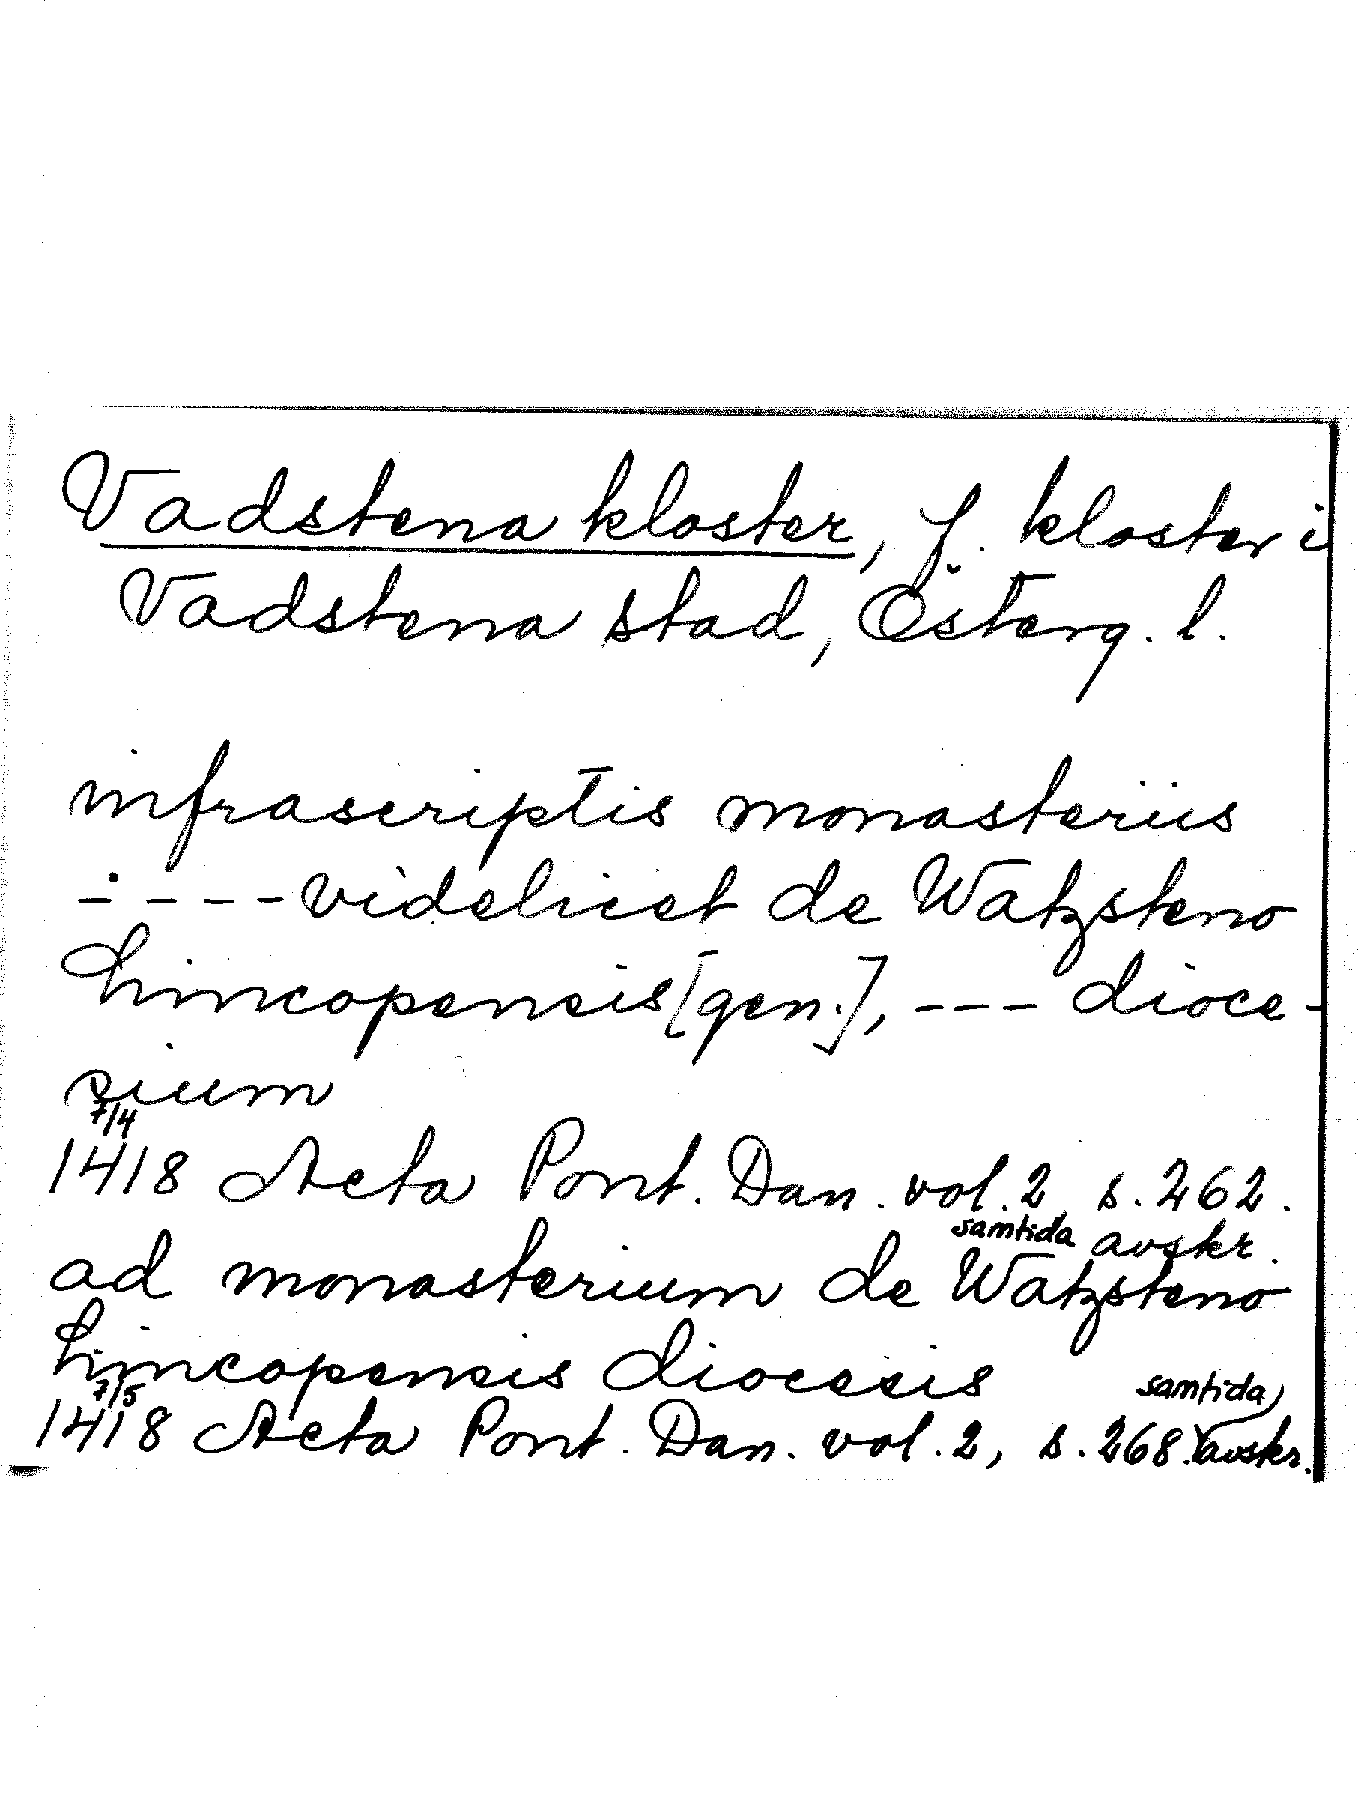 Vadstena kloster, f. kloster i
Vadstena stad, Österg. l.
infrascriptis monasteriis
- - - - videlicet de Watzsteno
Lincopensis [gen.], - - - dioce-
sium
7/4
1418 Acta Pont. Dan. vol. 2 s. 262.
samtida avskr.
ad monasterium de Watzsteno
Lincopensis diocesis
7/5 samtida
1418 Acta Pont. Dan. vol. 2, s. 268. avskr.